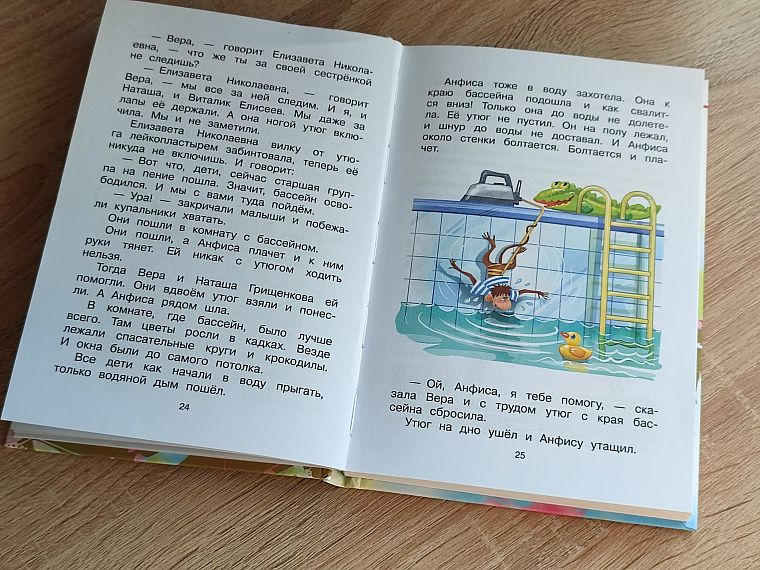 — Вера, — говорит Елизавета Никола-
евна, — что же ты за своей сестрёнкой
не следишь?
— Елизавета Николаевна, — говорит
Вера, — мы все за ней следим. И я, и
Наташа, и Виталик Елисеев. Мы даже за
лапы её держали. А она ногой утюг вклю-
чила. Мы и не заметили.
Елизавета Николаевна вилку от утю-
га лейкопластырем забинтовала, теперь её
никуда не включишь. И говорит:
— Вот что, дети, сейчас старшая груп-
па на пение пошла. Значит, бассейн осво-
бодился. И мы с вами туда пойдём.
— Ура! — закричали малыши и побежа-
ли купальники хватать.
Они пошли в комнату с бассейном.
Они пошли, а Анфиса плачет и к ним
руки тянет. Ей никак с утюгом ходить
нельзя.
Тогда Вера и Наташа Грищенкова ей
помогли. Они вдвоём утюг взяли и понес-
ли. А Анфиса рядом шла.
В комнате, где бассейн, было лучше
всего. Там цветы росли в кадках. Везде
лежали спасательные круги и крокодилы.
И окна были до самого потолка.
Все дети как начали в воду прыгать,
только водяной дым пошёл.
24
Анфиса тоже в воду захотела. Она к
краю бассейна подошла и как свалит-
ся вниз! Только она до воды не долете-
ла. Её утюг не пустил. Он на полу лежал,
и шнур до воды не доставал. И Анфиса
около стенки болтается. Болтается и пла-
чет.
— Ой, Анфиса, я тебе помогу, — ска-
зала Вера и с трудом утюг с края бас-
сейна сбросила.
Утюг на дно ушёл и Анфису утащил.
25